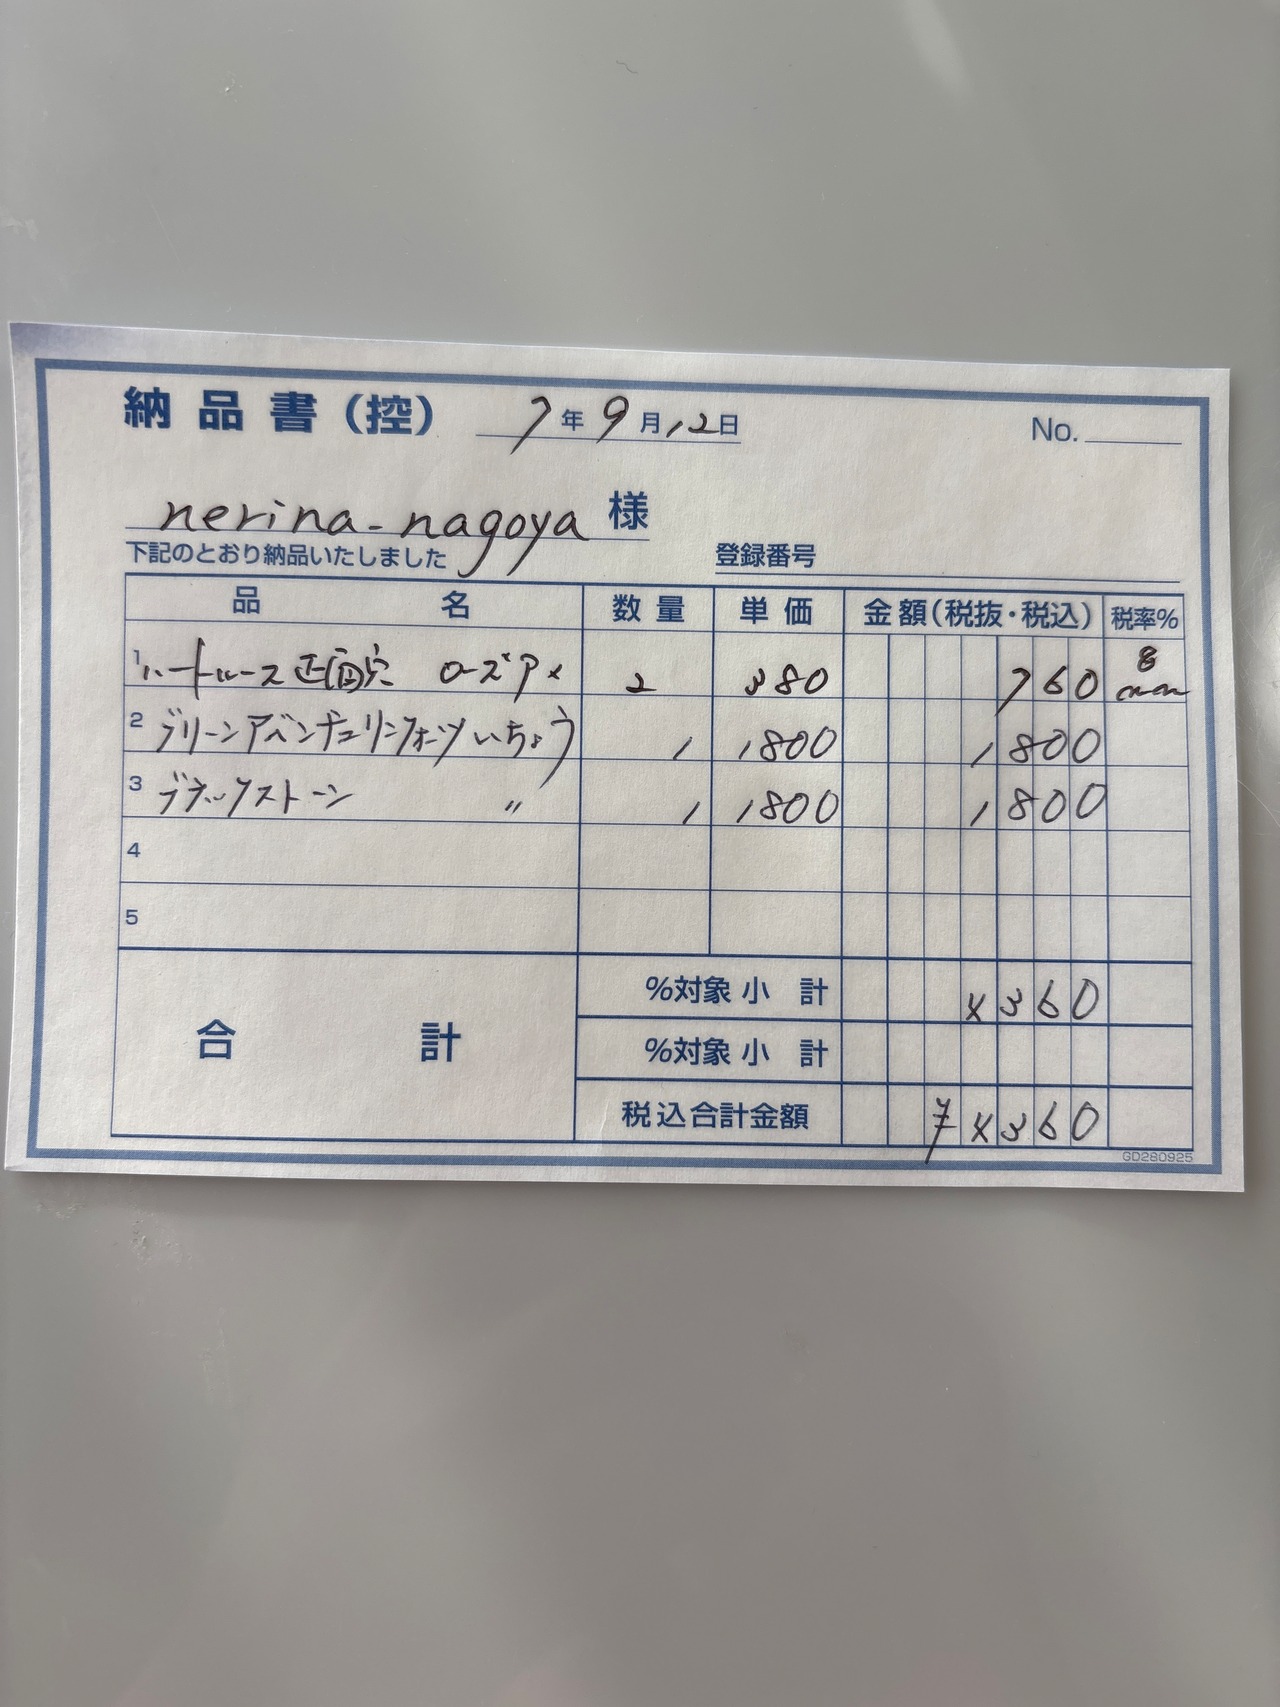 納品書(控) 7年9月12日 No.
nerina-nagoya 様
下記のとおり納品いたしました 登録番号
品名 数量 単価 金額(税抜・税込) 税率%
1 ハートルース正面穴 ローズアメ 2 380 760 8mm
2 グリーンアベンチュリンクォーツいちょう 1 1800 1800
3 ブラックストーン 〃 1 1800 1800
4
5
合計
%対象小計 4360
%対象小計
税込合計金額 ¥4360
GD280925